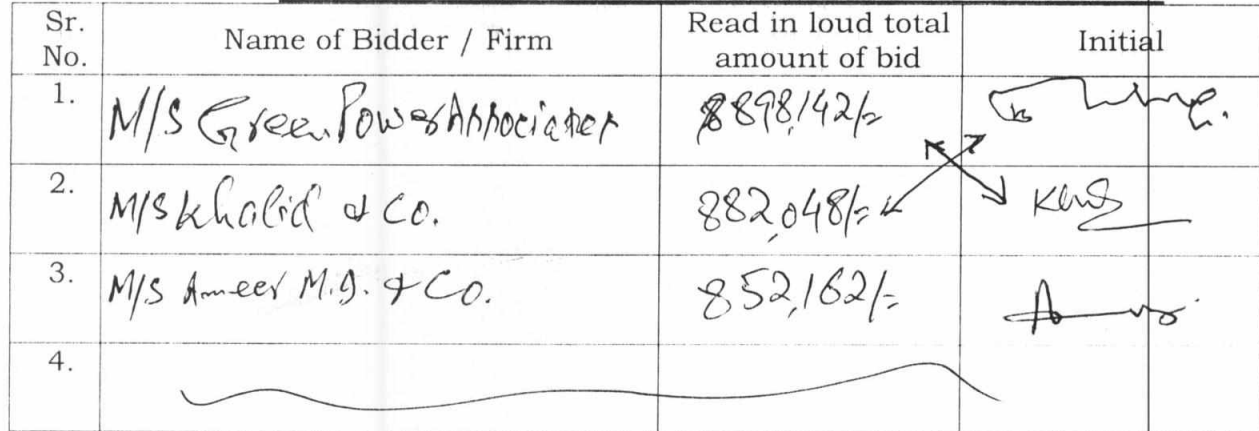 Sr. No. Name of Bidder / Firm Read in loud total amount of bid Initial
1. M/S Green Power Associates 898,142/=
2. M/S Khalid & Co. 882,048/=
3. M/S Ameer M.J. & Co. 852,162/=
4.